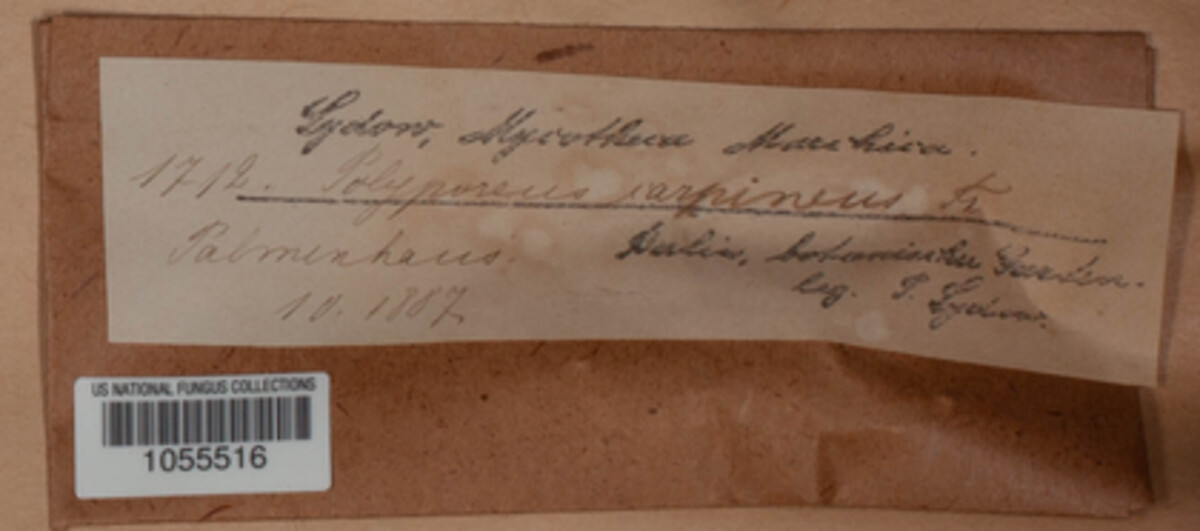 Sydow, Mycotheca Marchica.
1712. Polyporus carpineus Fr
Palmenhaus. Berlin, botanischer Garten.
10. 1887 leg. P. Sydow.
US NATIONAL FUNGUS COLLECTIONS
1055516